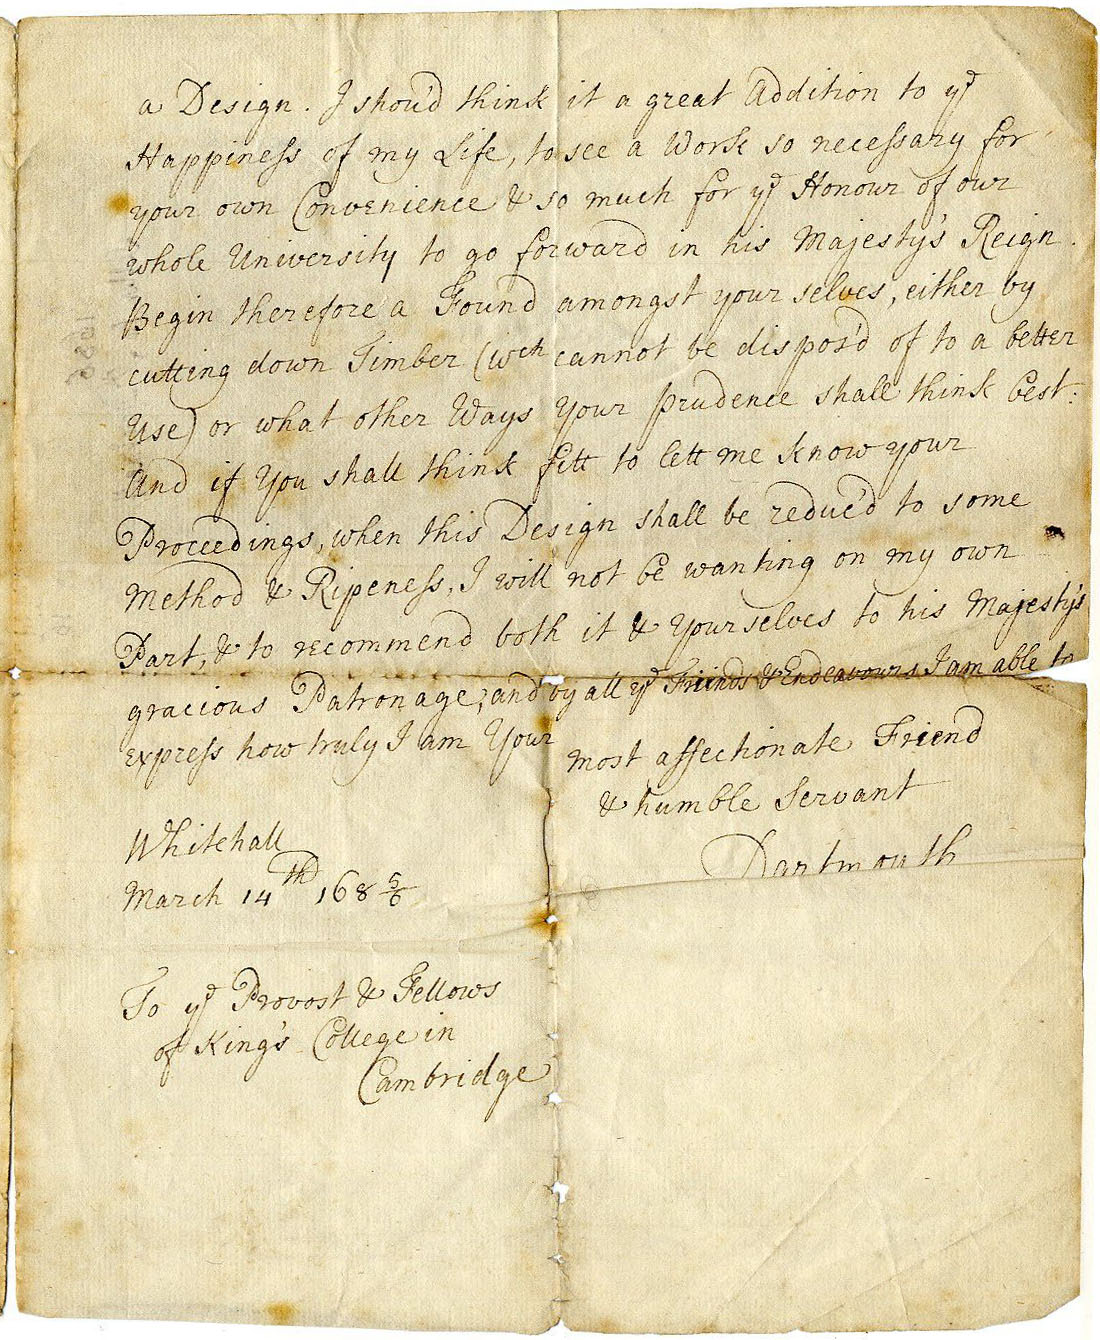 a Design. I shou'd think it a great Addition to yᵉ
Happiness of my Life, to see a Work so necessary for
your own Convenience & so much for yᵉ Honour of our
whole University to go forward in his Majesty's Reign.
Begin therefore a Found amongst your selves, either by
cutting down Timber (wch cannot be dispos'd of to a better
Use) or what other Ways Your prudence shall think best:
And if You shall think fitt to lett me know your
Proceedings, when this Design shall be reduc'd to some
Method & Ripeness, I will not be wanting on my own
Part, & to recommend both it & Yourselves to his Majesty's
gracious Patronage; and by all yᵉ Friends & Endeavours I am able to
express how truly I am Your
most affectionate Friend
& humble Servant
Dartmouth
Whitehall
March 14th 168 5/6
To yᵉ Provost & Fellows
of King's College in
Cambridge